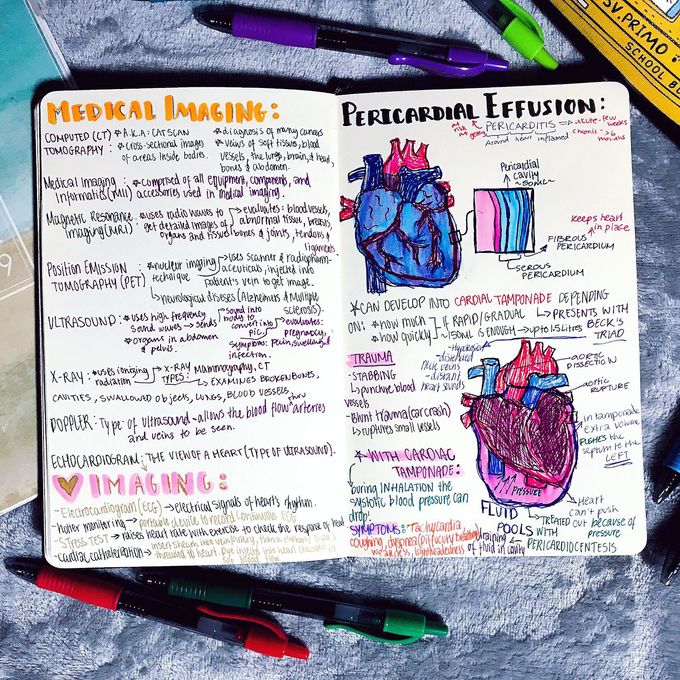 MEDICAL IMAGING:
COMPUTED (CT) TOMOGRAPHY:
*A.K.A: CAT SCAN
*cross-sectional images of areas inside bodies.
*diagnosis of many cancers
*Veins of soft tissues, blood vessels, the lungs, brain, heart, bones & abdomen.
Medical Imaging Informatics (MII)
*comprised of all equipment, components, and accessories used in medical imaging.
Magnetic Resonance Imaging (MRI)
*uses radio waves to get detailed images of organs and tissue
evaluates: blood vessels, abnormal tissue, breasts, bones & joints, tendons & ligaments
POSITION EMISSION TOMOGRAPHY (PET)
*nuclear imaging technique
uses scanner & radiopharmaceuticals, injected into patient's vein to get image.
neurological diseases (Alzheimers & Multiple sclerosis)
ULTRASOUND:
*uses high frequency sound waves → sends
sound into body to convert into pic
evaluates: pregnancy,
*organs in abdomen & pelvis.
symptoms: pain, swelling & infection.
X-RAY:
*uses ionizing radiation
X-RAY MAMMOGRAPHY, CT
TYPES:
EXAMINES BROKEN BONES,
CAVITIES, SWALLOWED OBJECTS, LUNGS, BLOOD VESSELS,
DOPPLER: Type of ultrasound - allows the blood flow thru arteries
and veins to be seen.
ECHOCARDIOGRAM: THE VIEW OF A HEART (TYPE OF ULTRASOUND).
IMAGING:
-Electrocardiogram (ECG) → electrical signals of heart's rhythm.
-Holter monitoring → portable device to record continuous ECG
-STRESS TEST → raises heart rate with exercise to check the response of heart
-cardiac catheterization →
PERICARDIAL EFFUSION:
PERICARDITIS
Around heart inflamed
acute - few weeks
chronic - >6 months
Pericardial cavity
~50mL~
Keeps heart in place
FIBROUS PERICARDIUM
SEROUS PERICARDIUM
*CAN DEVELOP INTO CARDIAL TAMPONADE DEPENDING
ON: *how much
*how quickly
IF RAPID/GRADUAL
150mL IS ENOUGH → up to 1.5 liters
PRESENTS WITH BECK'S TRIAD
-distended neck veins
-distant heart sounds
TRAUMA
-STABBING
↳puncture blood vessels
-Blunt trauma (car crash)
↳ruptures small vessels
AORTIC DISSECTION
aortic RUPTURE
in tamponade
extra volume
PUSHES the
septum to the
LEFT
*WITH CARDIAC TAMPONADE:
During INHALATION the
systolic blood pressure can
drop.
SYMPTOMS: Tachycardia
coughing, dyspnea (difficulty breathing)
weakness, lightheadedness
PRESSURE
FLUID POOLS
Heart can't push out because of pressure
TREATED WITH PERICARDIOCENTESIS
draining of fluid in cavity
SV. PRIMO
SCHOOL BU
9